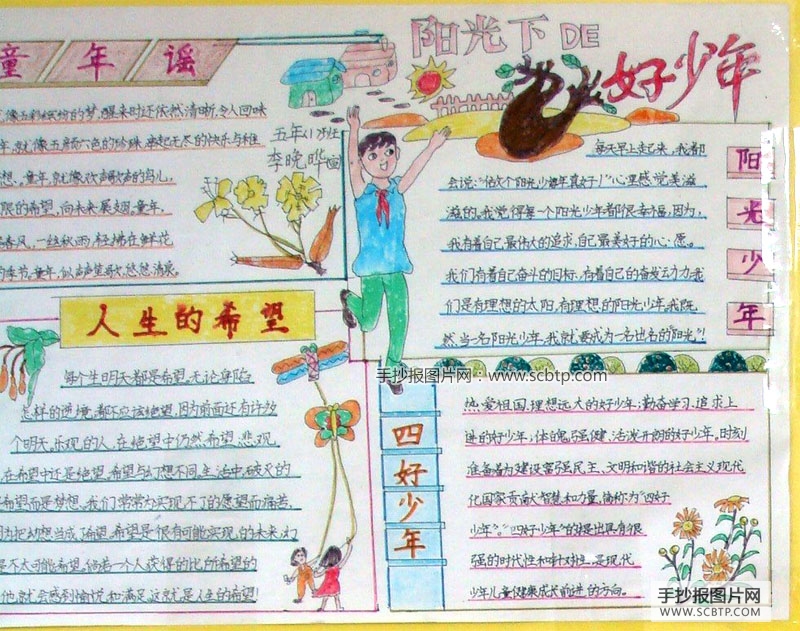 阳光下DE
好少年
童年谣
像五彩缤纷的梦,醒来时还依然清晰,令人回味
就像五颜六色的珍珠,串起无尽的快乐与
想。童年,就像欢声歌者的鸟儿,
限的希望,向未来展翅。童年,
春风,一丝秋雨,轻拂在鲜花
季节,童年,似声声笙歌,悠悠清泉。
五年(1)班
李晚晔
每天早上走起来,我都
会说:“做个阳光少年真好!”心里感觉美滋
滋的。我觉得每一个阳光少年都很幸福,因为,
我有着自己最伟大的追求,自己最美好的心愿。
我们有着自己奋斗的目标,有着自己的奋发动力,我
们是有理想的太阳,有理想的阳光少年。我既
然当一名阳光少年,我就要成为一名出名的“阳光”!
阳光少年
人生的希望
每个生明天都是希望。无论身陷
怎样的逆境,都不应该绝望,因为前面还有许多
个明天。乐观的人,在绝望中仍然希望,悲观,
在希望中还是绝望。希望与幻想不同。生活中,破灭的
希望而是梦想。我们常常为实现不了的愿望而痛苦,
因为把幻想当成了希望。希望是很有可能实现的未来,幻
是不太可能希望,给着一个人获得的比所希望的
他就会感到愉悦和满足,这就是人生的希望!
手抄报图片网:www.scbtp.com
四好少年
热爱祖国,理想远大的好少年;勤奋学习,追求上
进的好少年,体魄强健,活泼开朗的好少年。时刻
准备着为建设富强民主、文明和谐的社会主义现代
化国家贡献智慧和力量,简称为“四好
少年”。“四好少年”的提出具有很
强的时代性和针对性,是现代
少年儿童健康成长前进的方向。
手抄报图片网
WWW.SCBTP.COM